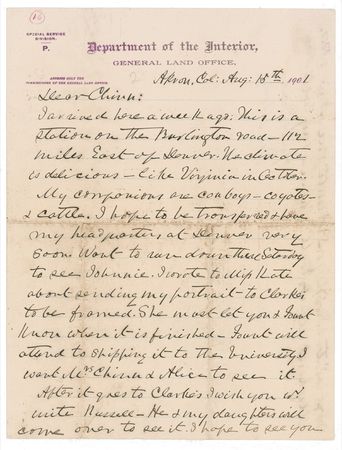 (16)
SPECIAL SERVICE
DIVISION.
P.
Department of the Interior,
GENERAL LAND OFFICE.
ADDRESS ONLY THE
COMMISSIONER OF THE GENERAL LAND OFFICE.
Akron, Col: Aug: 15th, 1901
Dear Chinn:
I arrived here a week ago. This is a
station on the Burlington road - 112
miles East of Denver. The climate
is delicious - like Virginia in October.
My companions are cowboys - coyotes -
& cattle. I hope to be transferred & have
my headquarters at Denver very
soon. Want to run down there Saturday
to see Johnnie. I wrote to Miss Kate
about sending my portrait to Clarkes
to be framed. She must let you & Fount
Know when it is finished - Fount will
attend to shipping it to the University. I
want Mrs Chinn & Alice to see it.
After it goes to Clarke's I wish you wd
write Russell - He & my daughters will
come over to see it. I hope to see you